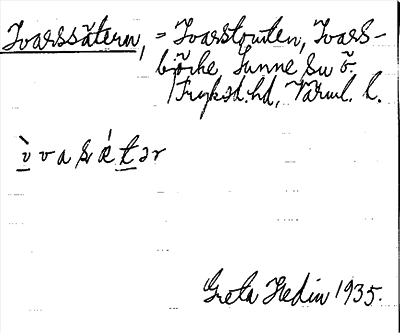 Ivarssätern, = Ivarstomten, Ivars-
björke, Sunne sn ö.
Fryksd. hd, Värml. l.
ì v a s ǽ t ə r
Greta Hedin 1935.